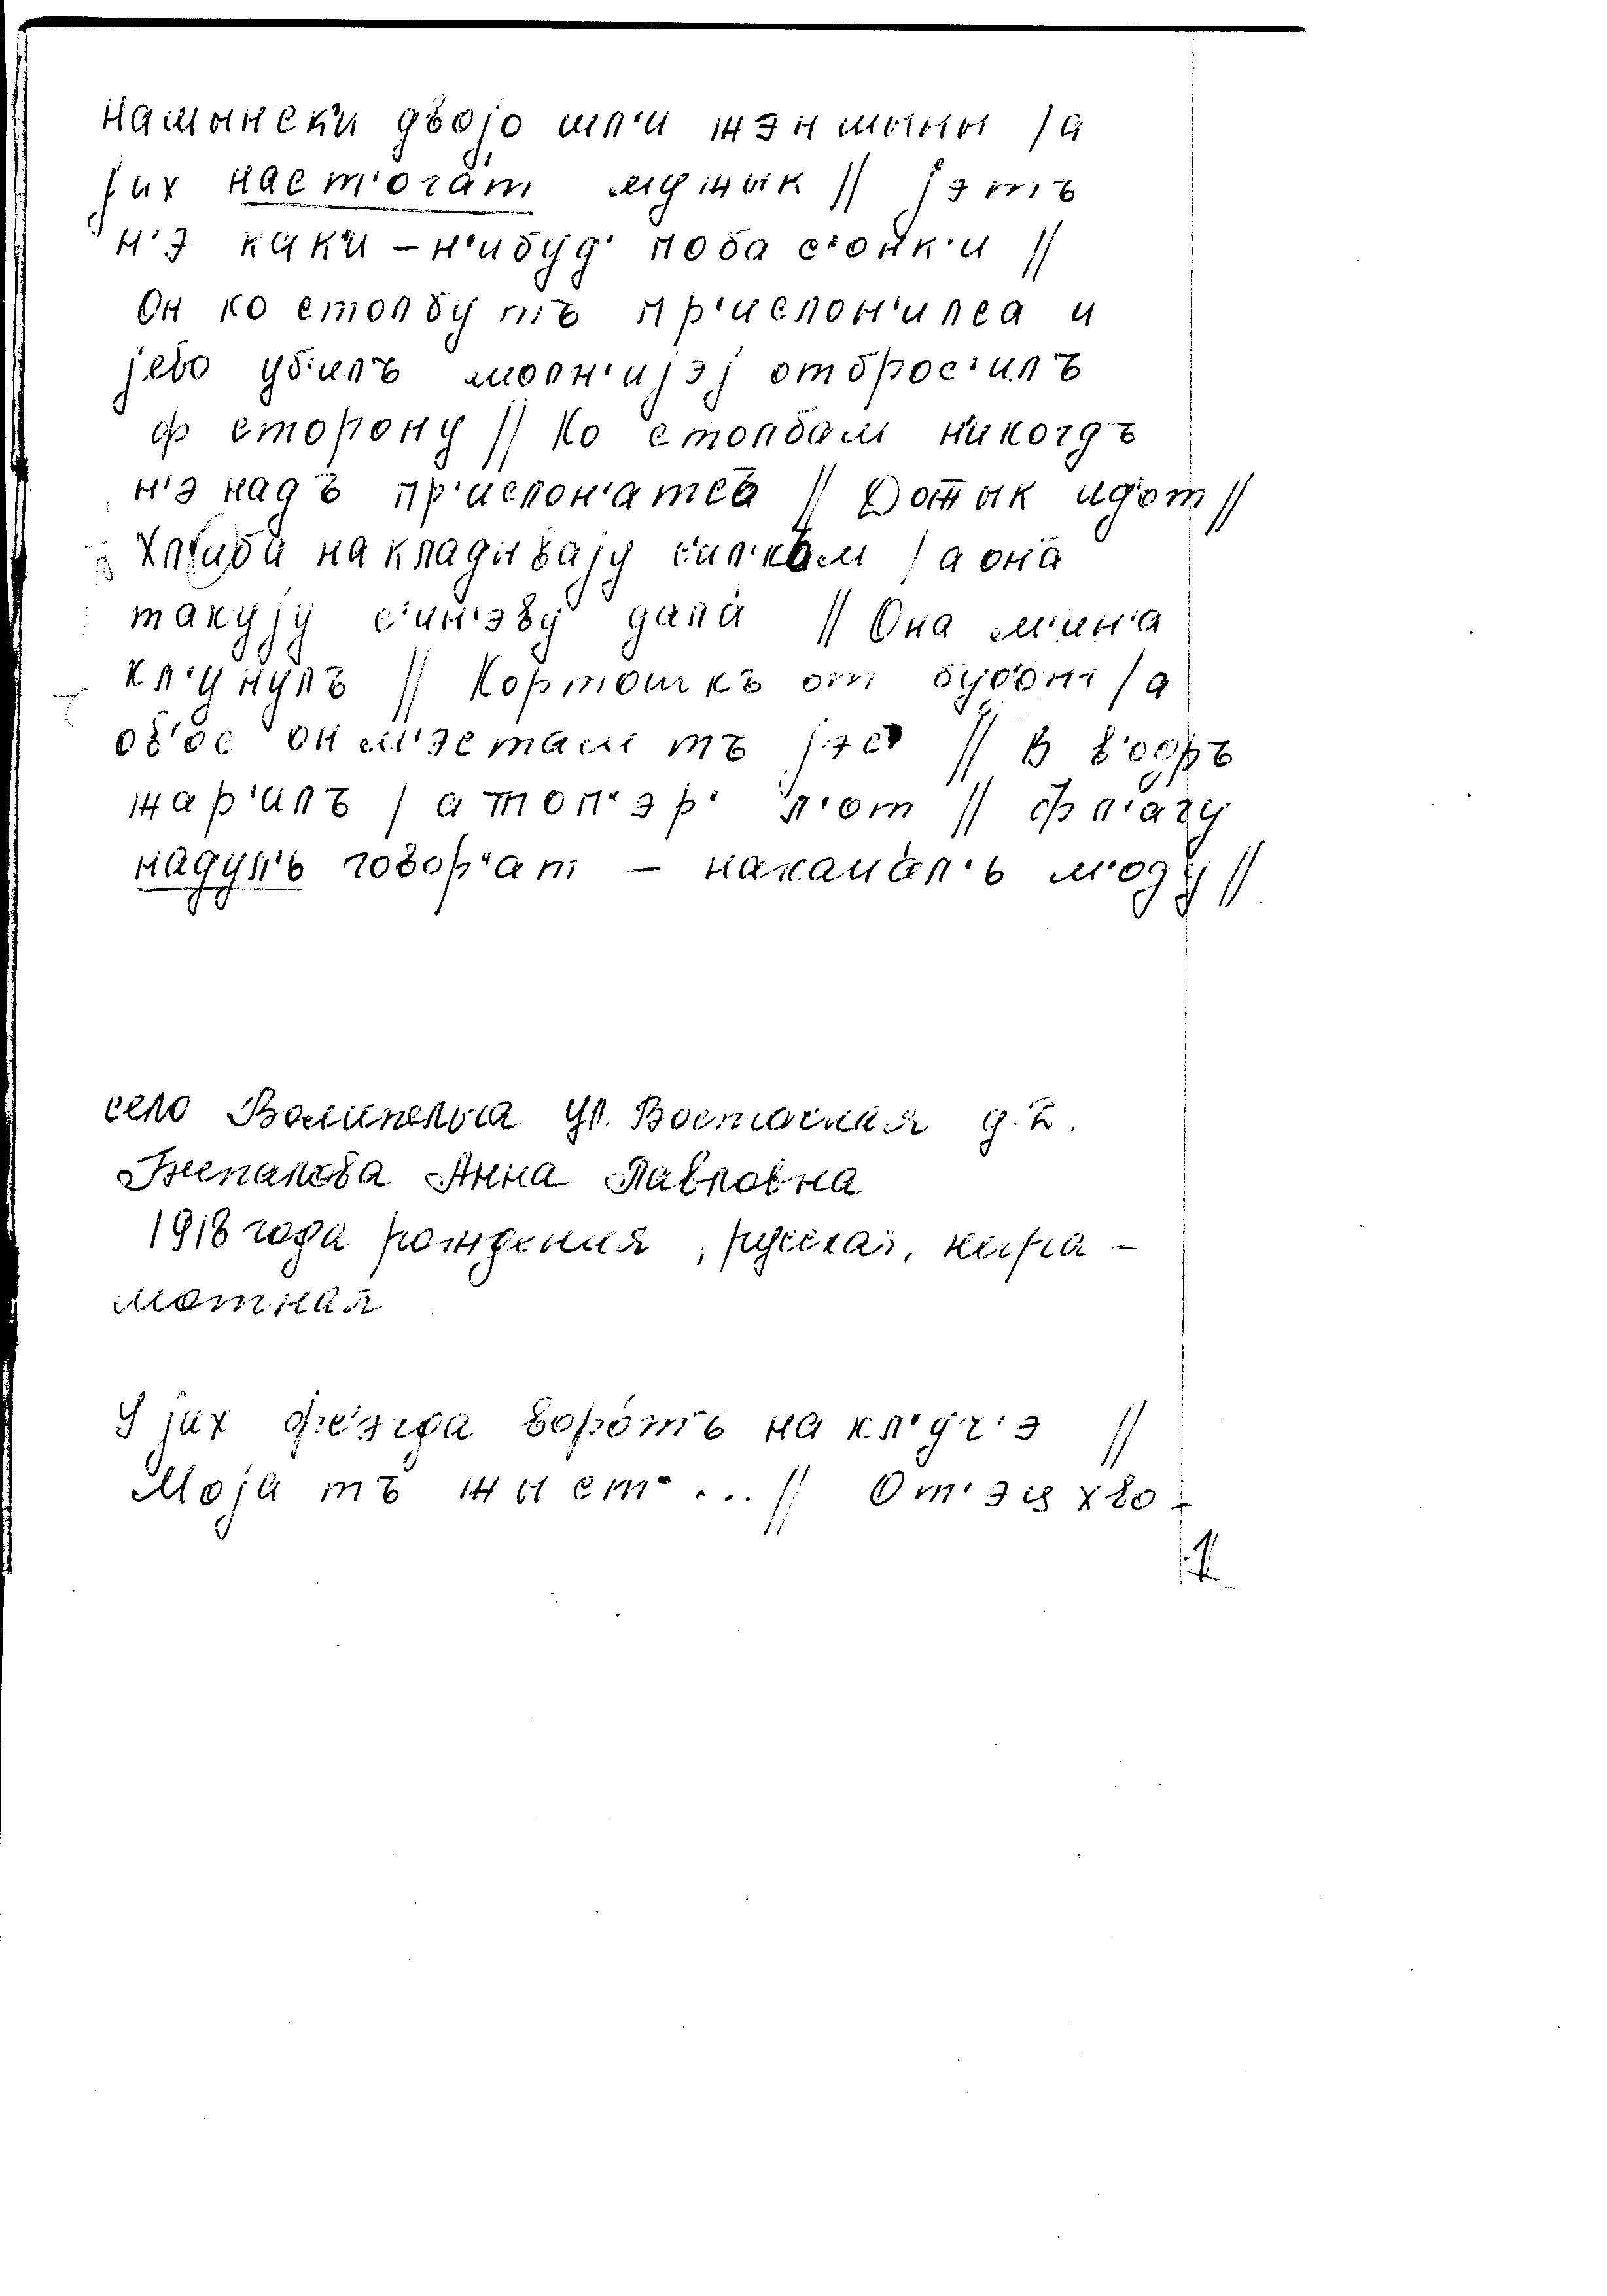 нашынск'и двојо шл'и жэншыны /а
јих наст'ога́т мужык // јэтъ
н'э как'и – н'ибуд' поба с'онк'и //
Он ко столбу тъ пр'ислон'илса и
јево уб'илъ молн'ијэј отброс'илъ
ф сторону // Ко столбам н'икогдъ
н'э надъ пр'ислон'атсъ // Дотык ид'от //
Хл'иба накладывају с'ил'ком / а она
такују с'ин'эву дала // Она м'ин'а
кл'унулъ // Кортошкъ от буд'от / а
ов'ос он м'эстам тъ јэс' // В в'одръ
жар'илъ / а топ'эр' л'от // Фл'агу
надул'ъ говор'ат – накача́л'ъ м'оду //
село ул. д. 2.
Анна Павловна
1918 года рождения , русская, негра -
мотная
У јих фс'эгда воро́тъ на кл'уч'э //
Моја тъ жыст' ... // От'эц хво -